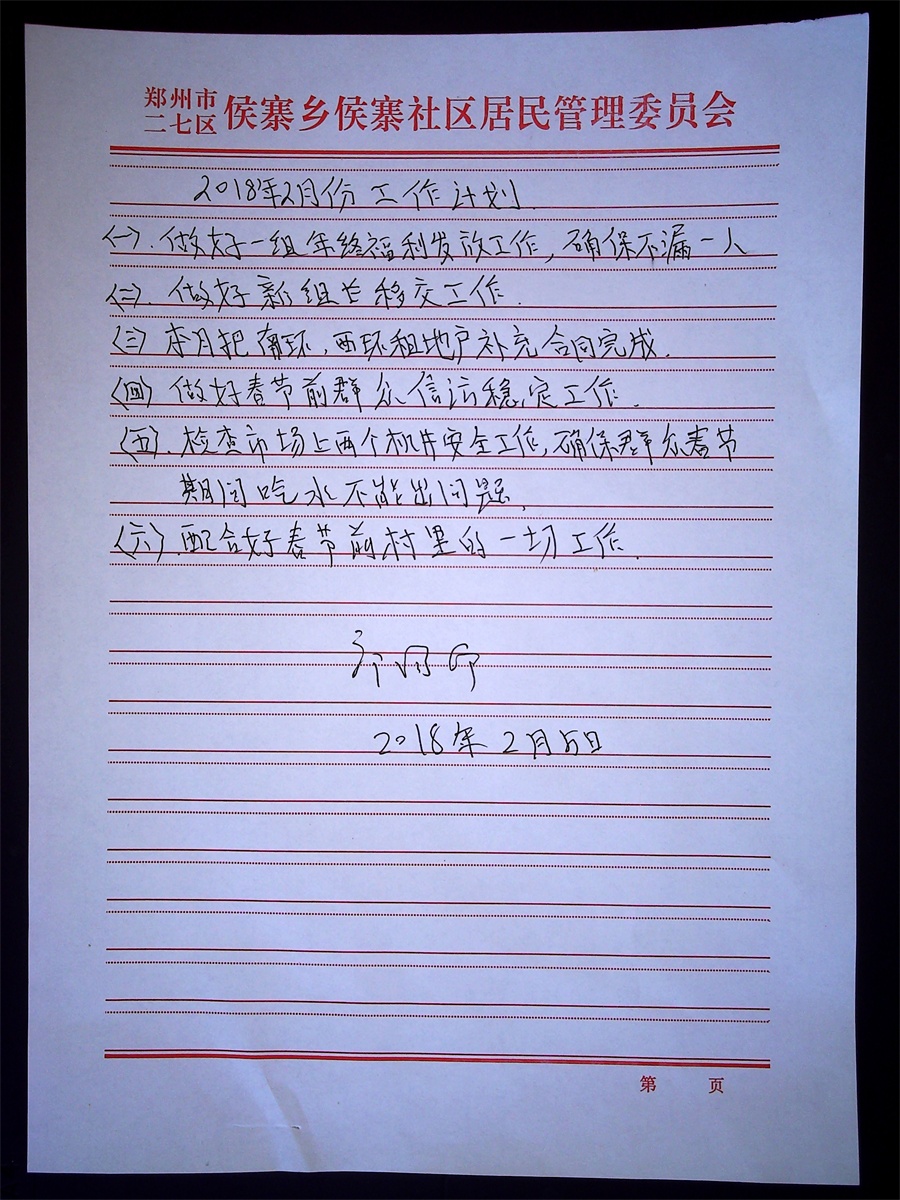 郑州市
二七区 侯寨乡侯寨社区居民管理委员会
2018年2月份工作计划
(一).做好一组年终福利发放工作,确保不漏一人
(二).做好新组长移交工作.
(三)本月把南环,西环租地户补充合同完成.
(四)做好春节前群众信访稳定工作.
(五).检查市场上两个机井安全工作,确保群众春节
期间吃水不能出问题,
(六).配合好春节前村里的一切工作.
2018年2月5日
第 页